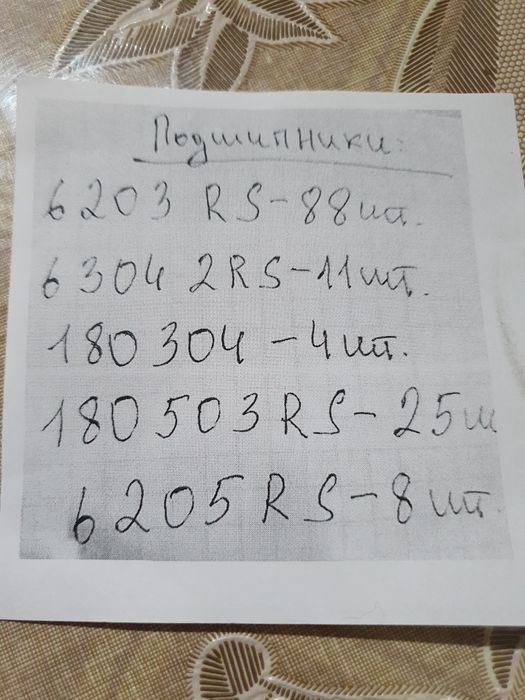 Подшипники:
6203 RS-88шт.
6304 2RS-11шт.
180304-4шт.
180503RS-25ш
6205RS-8шт.